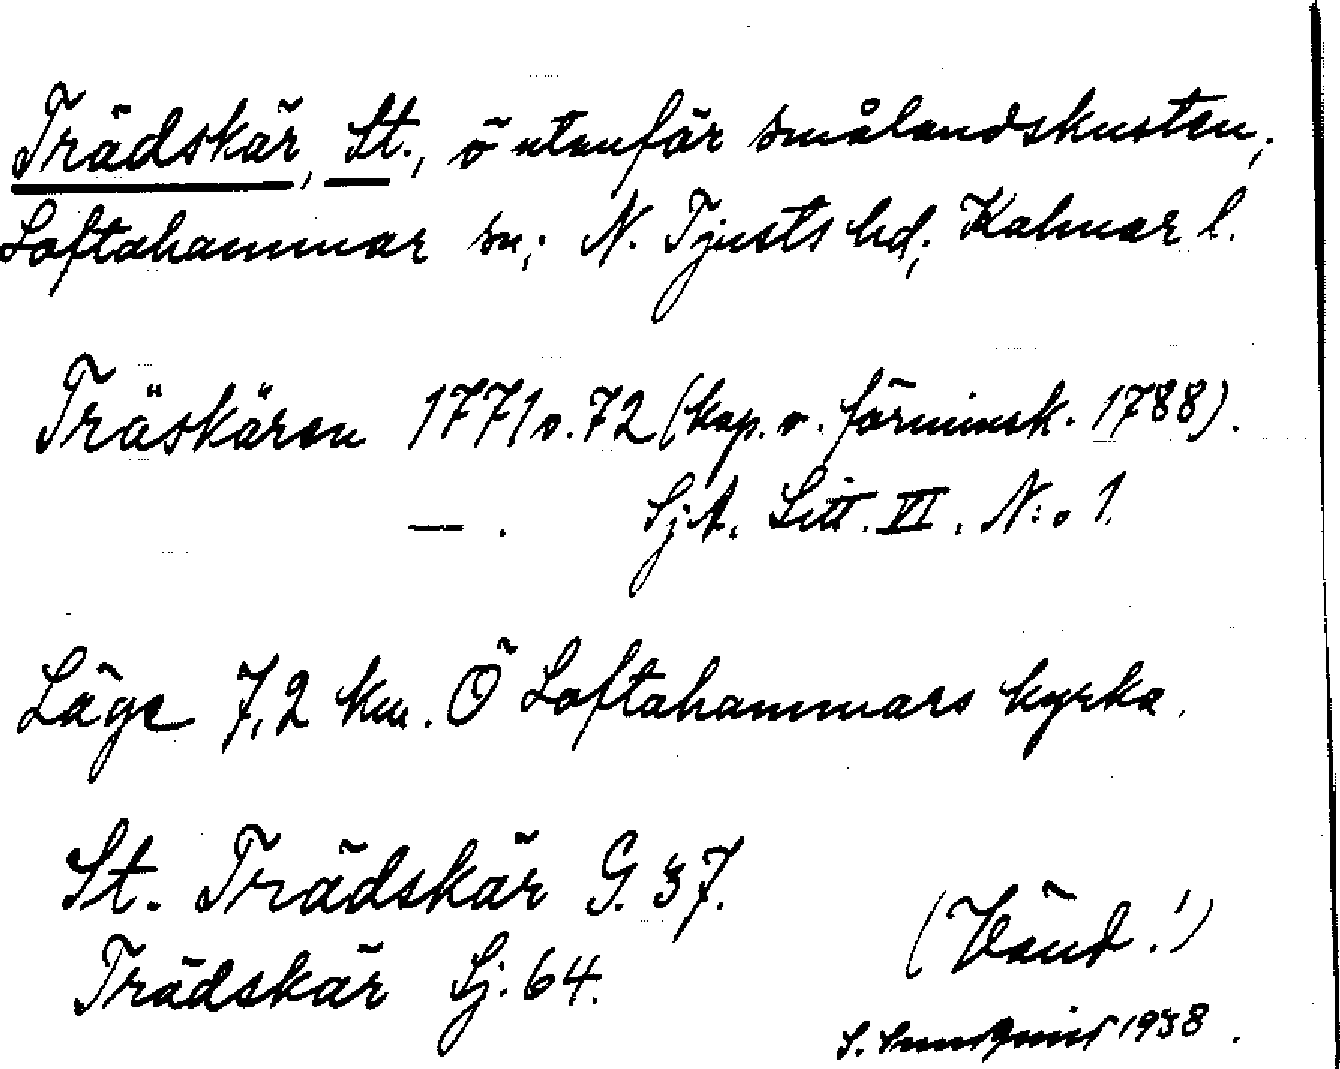 Trädskär, St., ö utanför smålandskusten,
Loftahammar sn, N. Tjusts hd, Kalmar l.
Träskären 1771 o. 72 (kop. o. förminsk. 1788).
—. SjA. Litt. VI. N:o 1.
Läge 7,2 km. Ö Loftahammars kyrka.
St. Trädskär G. 37.
Trädskär Sj. 64.
(Vänd!)
S. 1938.